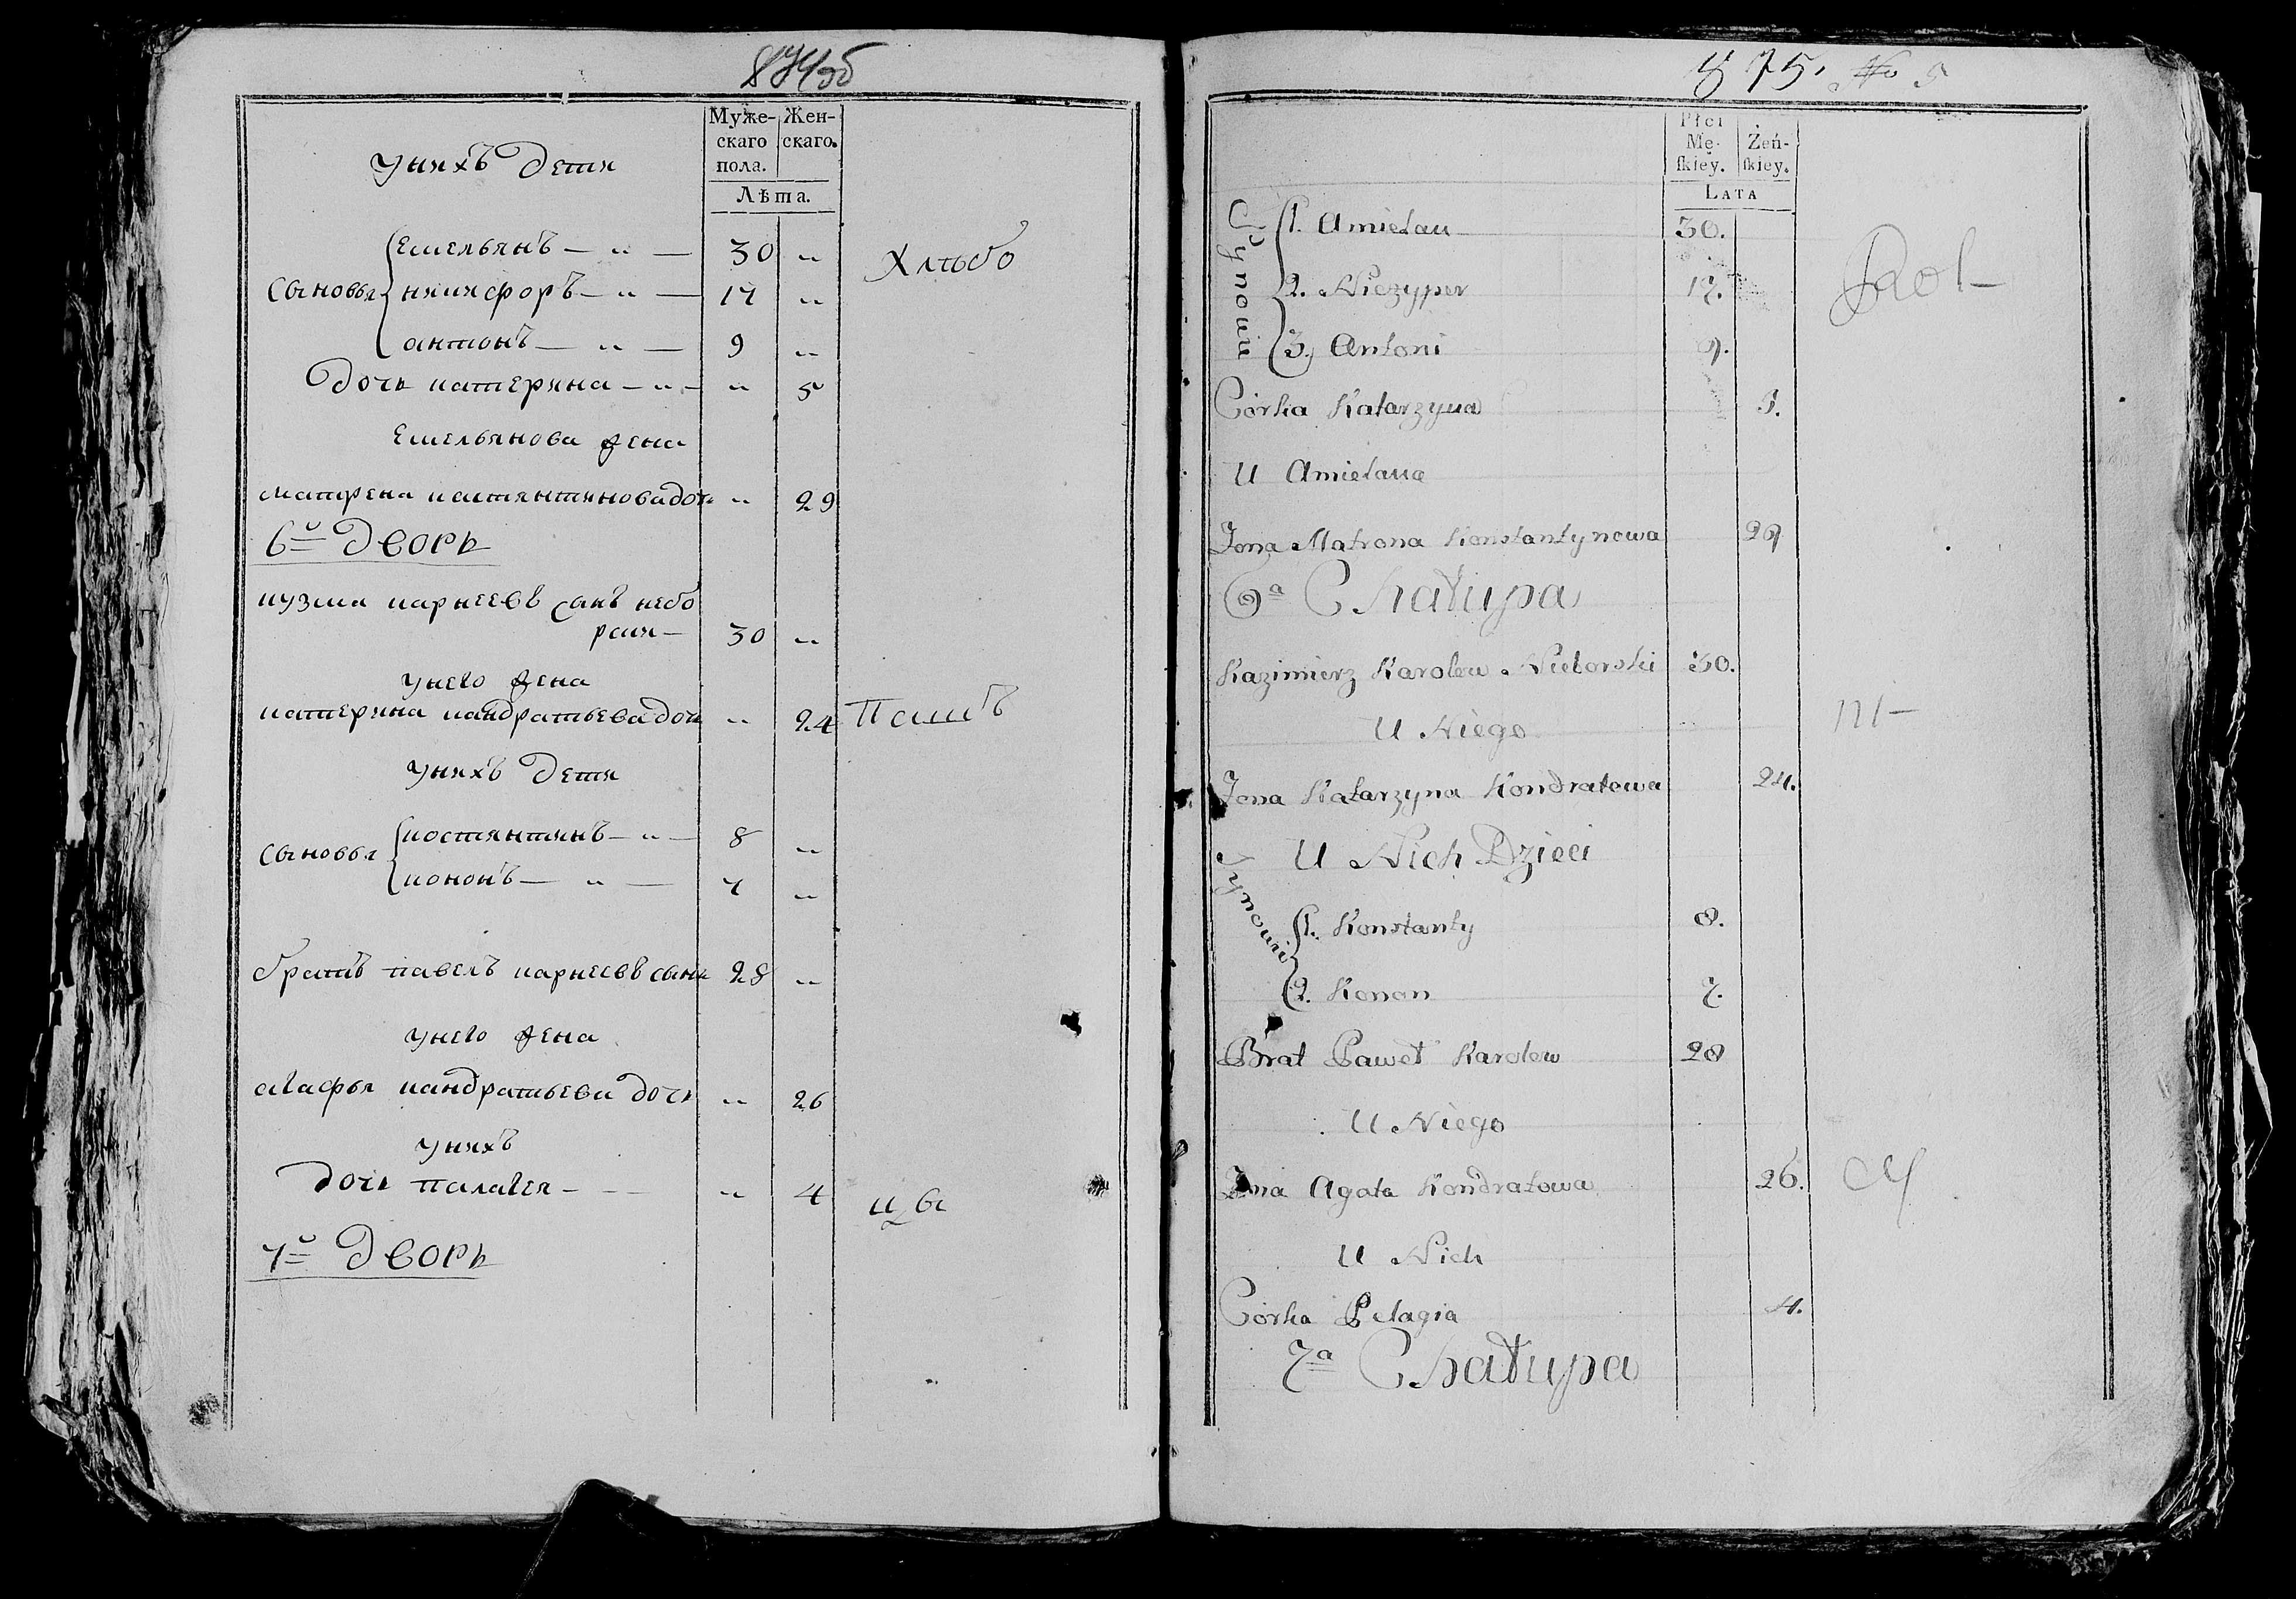 874 об
Муже-
скаго
пола.
Жен-
скаго.
Лѣта.
унихъ дети
Сыновья
Емельянъ — " — 30 "
никифоръ — " — 17 "
антонъ — " — 9 "
дочь катерина — " — " 5
Емельянова жена
матрена костянтинова дочь " 29
6й дворъ
кузма карнеевъ сынъ небо
рски — 30 "
унего жена
катерина кандратьева дочь " 24
унихъ дети
сыновья
костянтинъ — " — 8 "
кононъ — " — 7 "
братъ павелъ карнеевъ сынъ 28 "
унего жена
агафья кандратьева дочь " 26
унихъ
дочь палагея — " 4
7й дворъ
Хлѣбо
Пашъ
цы
875. No 5
Płci
Mę-
ſkiey.
Żeń-
ſkiey.
LATA
Synowie
1. Amielan 30.
2. Niczyper 17.
3. Antoni 9.
Córka Katarzyna 5.
U Amielana
Zona Matrona Konstantynowa 29
6a Chałupa
Kazimierz Karolew Nieborski 30.
U Niego
Zona Katarzyna Kondratowa 24.
U Nich Dzieci
Synowie
1. Konstanty 8.
2. Konon 7.
Brat Paweł Karolew 28
U Niego
Zona Agata Kondratowa 26.
U Nich
Córka Pelagia 4.
7a Chałupa
Rol—
ni—
cy